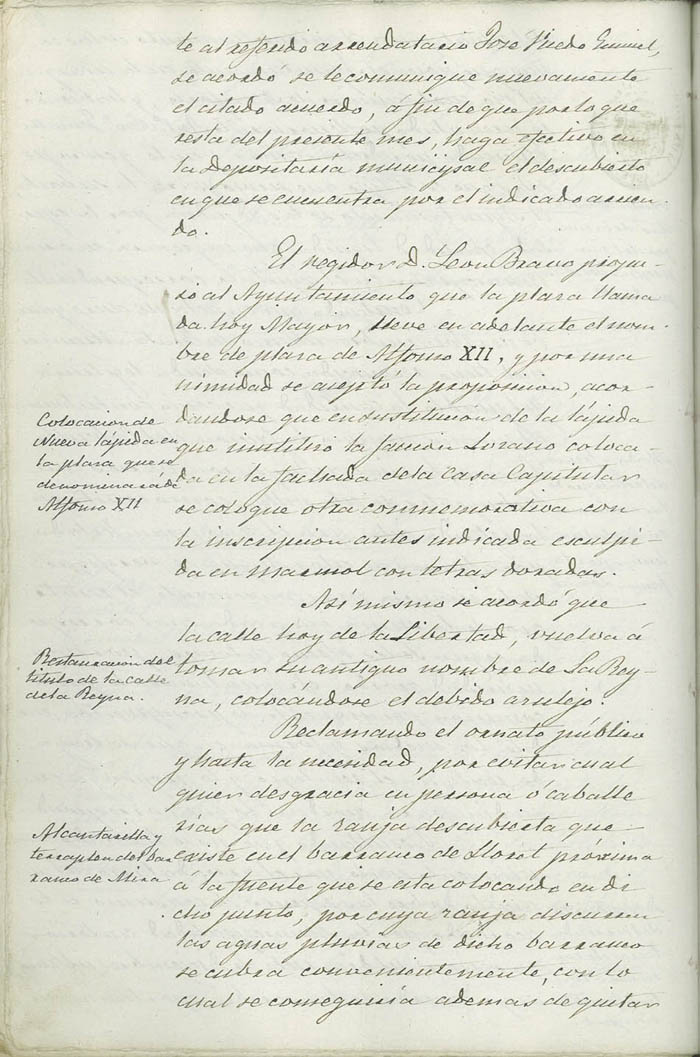 te al referido arrendatario José
se acordó se le comunique nuevamente
el citado acuerdo, á fin de que por lo que
resta del presente mes, haga efectivo en
la Depositaría municipal el descubierto
en que se encuentra por el indicado arrien-
do.
El regidor D. Leon Bravo propu-
so al Ayuntamiento que la plaza llama
da hoy Mayor, lleve en adelante el nom-
bre de plaza de Alfonso XII, y por una
nimidad se aceptó la proposicion, acor-
dandose que en sustitucion de la lápida
que inutilizó la faccion Lozano coloca-
da en la fachada de la Casa Capitular
se coloque otra conmemorativa con
la inscripcion antes indicada esculpi-
da en marmol con letras doradas.
Colocacion de
Nueva lápida en
la plaza que se
denominara de
Alfonso XII
Asi mismo se acordó que
la calle hoy de la Libertad, vuelva á
tomar su antiguo nombre de La Rey-
na, colocándose el debido azulejo.
Restauracion del
titulo de la calle
de la Reyna.
Reclamando el ornato público
y hasta la necesidad, por evitar cual
quier desgracia en persona ó caballe
rías que la zanja descubierta que
existe en el barranco de Lloret próxima
á la fuente que se esta colocando en di
cho punto, por cuya zanja discurren
las aguas pluvias de dicho barranco
se cubra convenientemente, con lo
cual se conseguiria ademas de quitar
Alcantarilla y
terraplen del bar
ranco de Mira